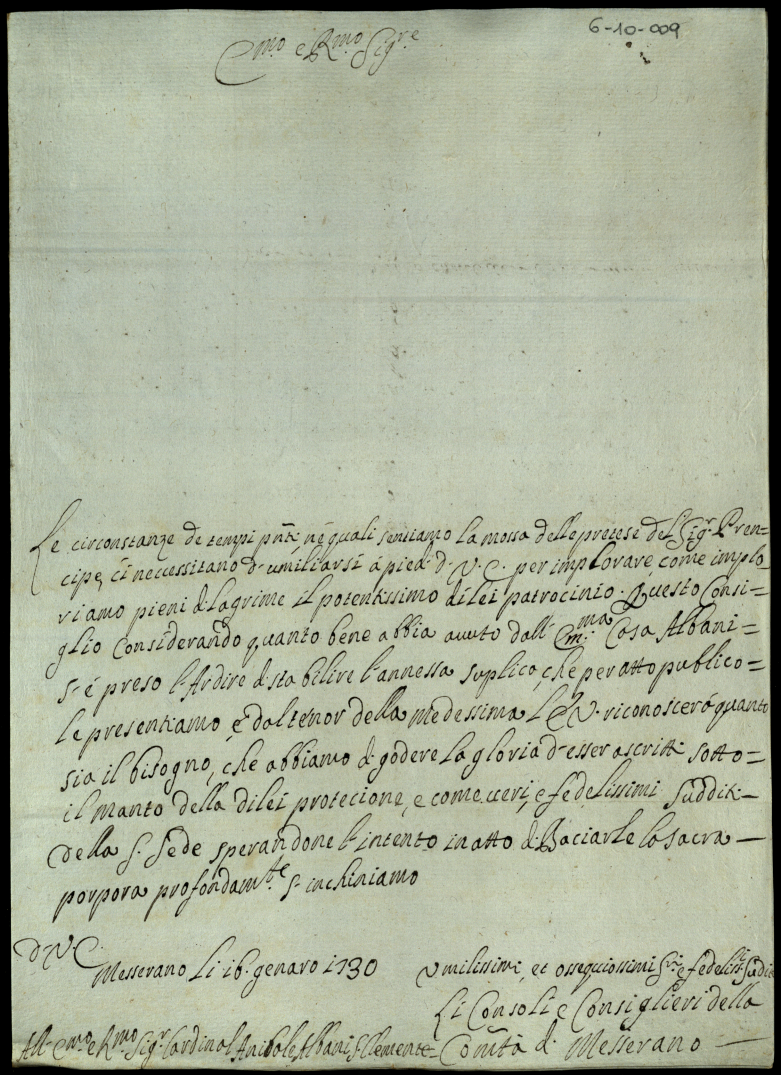 6-10-009
Emo e Rmo Sigre
Le circonstanze de tempi pnti nè quali sentiamo la mossa delle pretese del Sigr Pren=
cipe, ci necessitano d'umiliarsi à piedi d. V. E. per implorare, come implo
riamo pieni di lagrime il potentissimo di lei patrocinio. Questo Consi=
glio considerando quanto bene abbia avuto dall' Emma Casa Albani=
s'é preso l'Ardire di stabilire l'annessa suplica, che per atto publico=
le presentiamo, e dal tenor della medessima l'E V. riconoscerà quanto
sia il bisogno, che abbiamo di godere la gloria d'esser ascritti sotto=
il manto della di lei protecione, e come veri, e fedelissimi sudditi-
della S. Sede sperandone l'intento in atto di Baciarle la sacra —
porpora profondamte s'inchiniamo
D V. E.
Messerano li 16. genaro 1730
Umilissimi, et ossequiossimi Sri e fedelissi Sudi
Li Consoli e Consiglieri della
Comtà di Messerano —
All' Emo e Rmo Sigr Cardinal Anibale Albani S. Clemente=